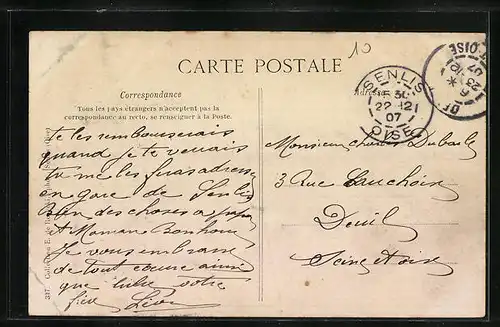 10
CARTE POSTALE
Correspondance
Tous les pays étrangers n'acceptent pas la
correspondance au recto, se renseigner à la Poste.
Adresse
SENLIS
5 30
22-12
07
OISE
23
07
OISE
te les rembourserais
quand je te verrais
tu me les feras adresser
en gare de Senlis
Bien des choses a papa
et Maman Bonhour
Je vous embrasse
de tout coeur ainsi
que votre
Léon
Monsieur Charles
3 Rue Cauchoix
Deuil
Seine et Oise
337. Collection